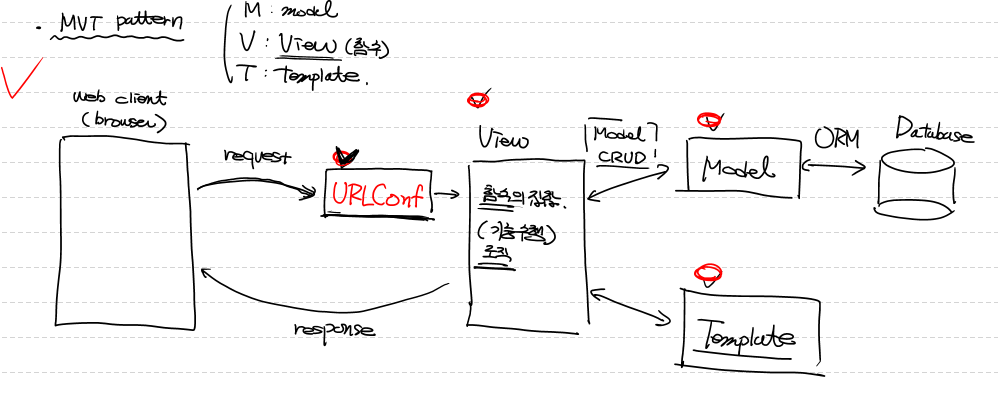 · MVT pattern
M : model
V : View (함수)
T : Template.
web client
(browser)
request
URLConf
View
함수의 집합.
(기능수행)
로직
Model
CRUD
Model
ORM
Database
response
Template